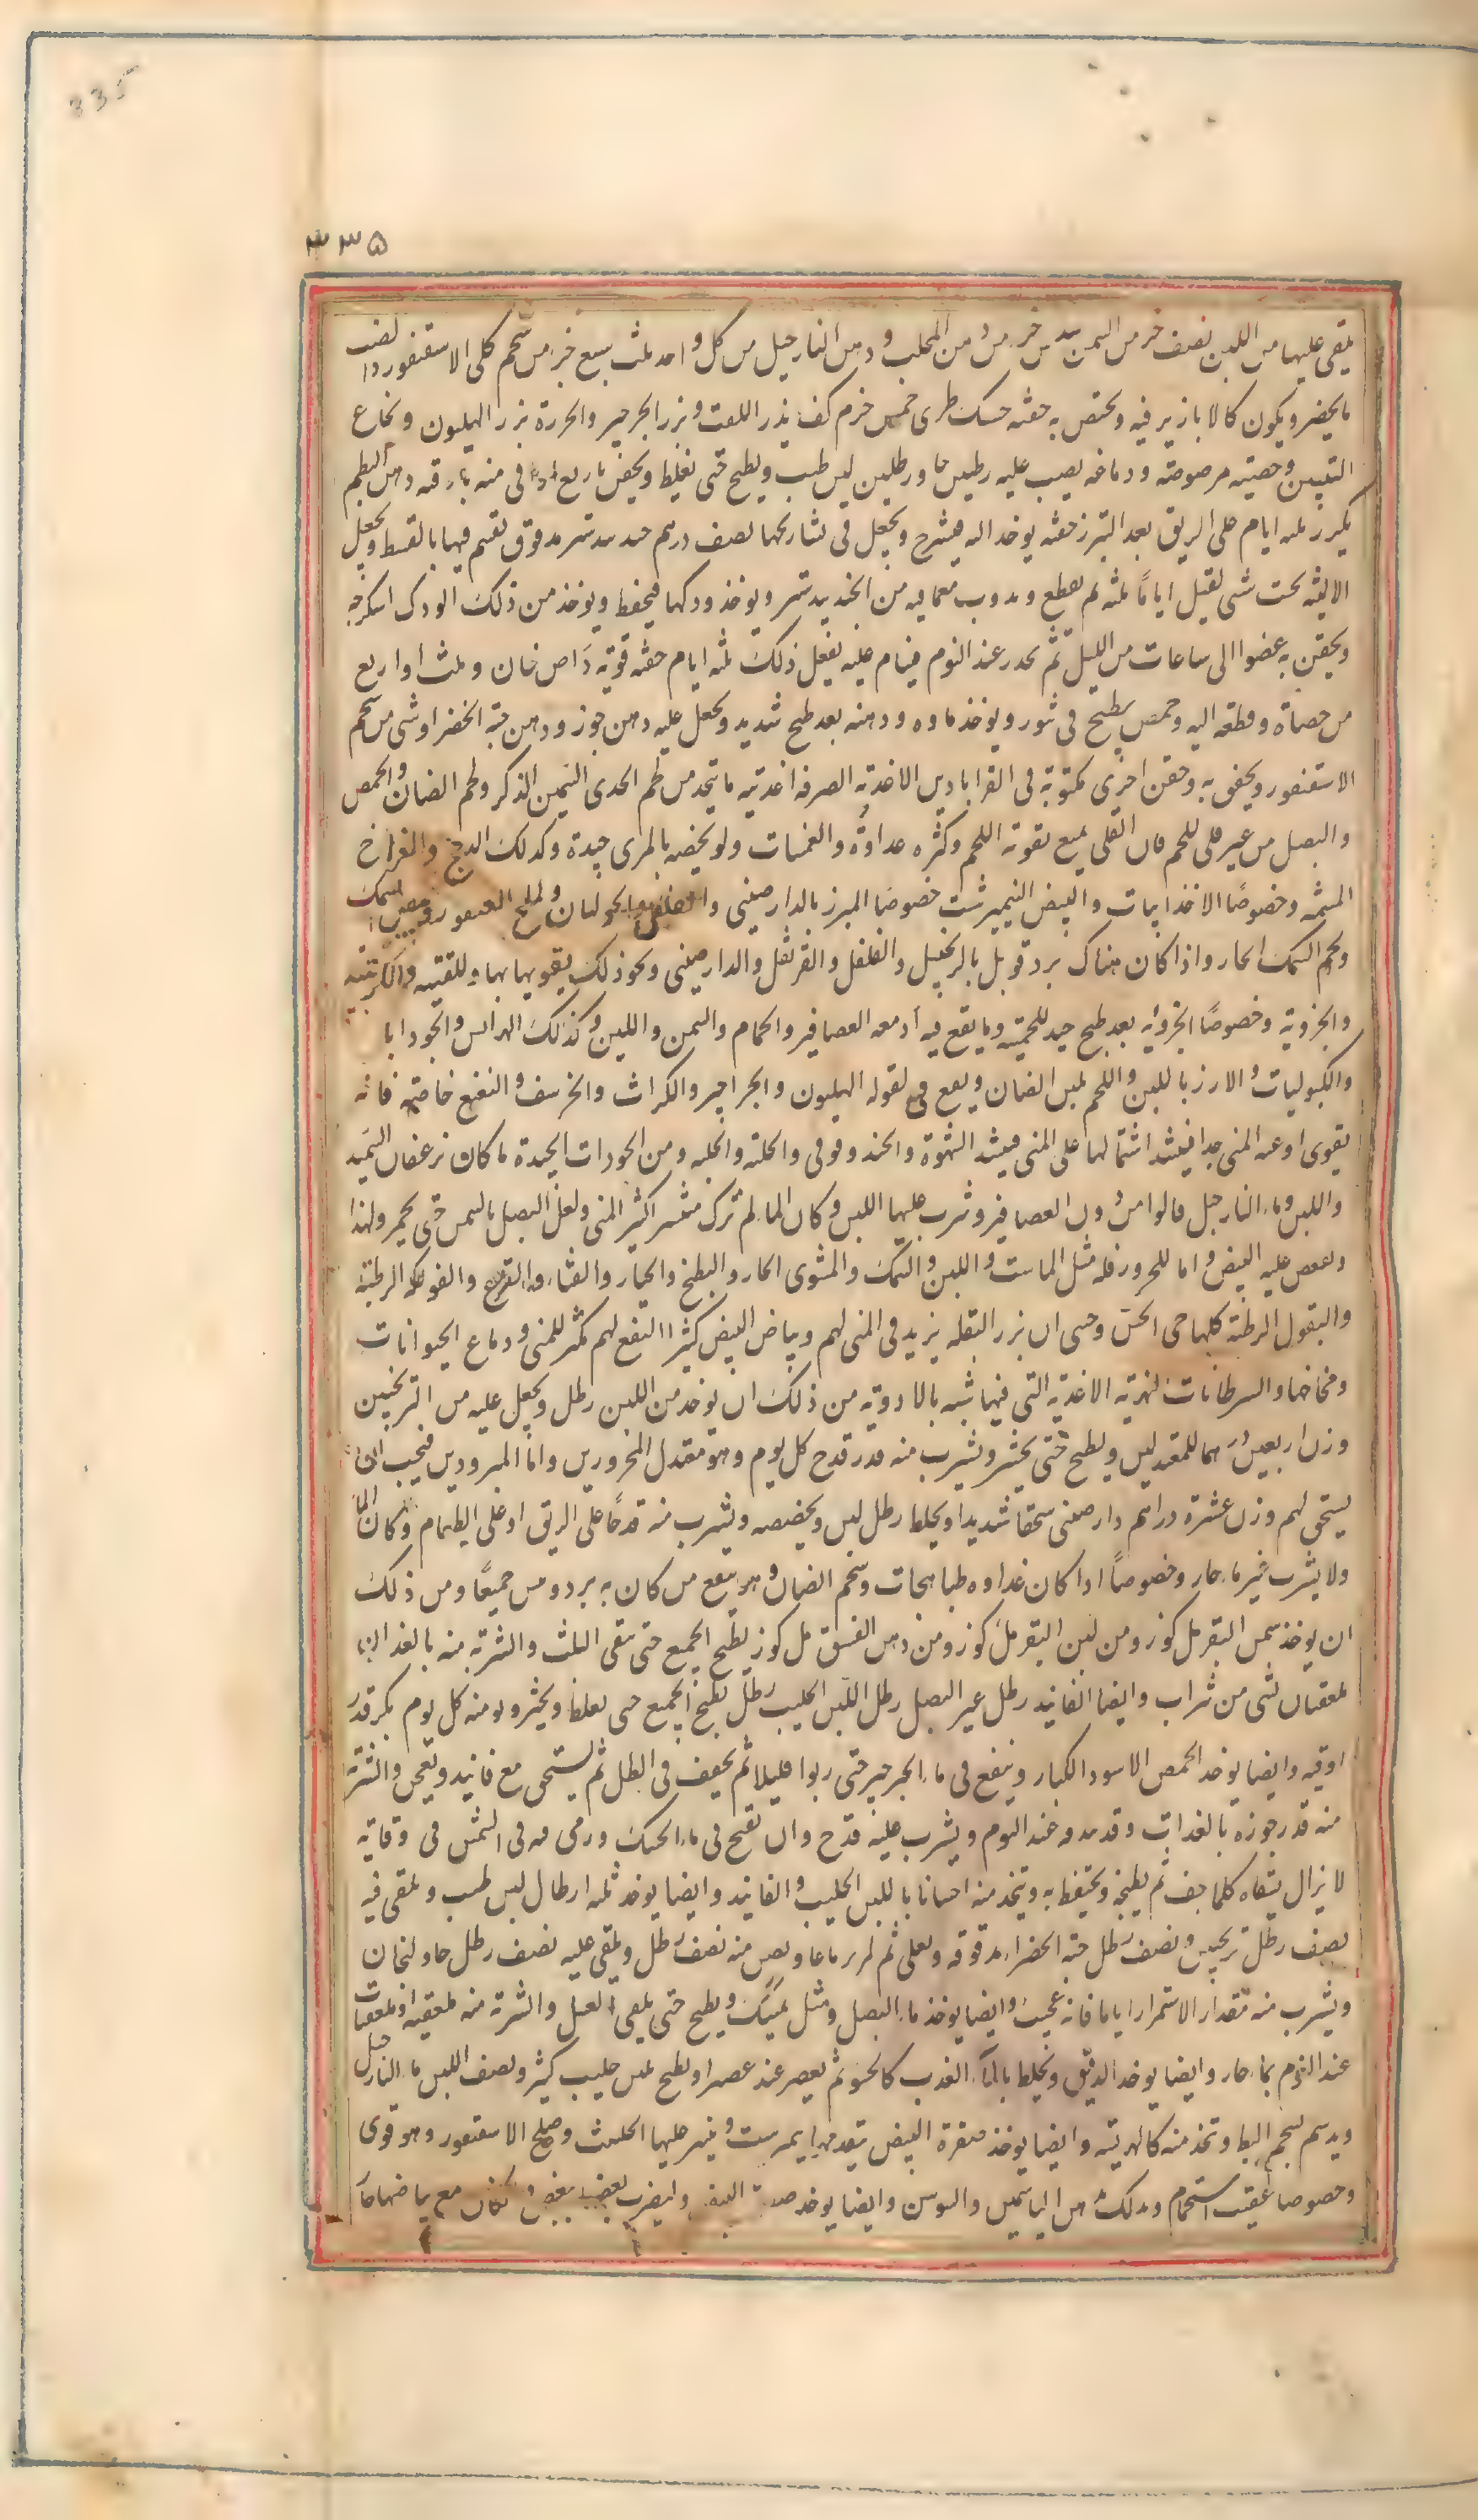 335
٣٣٥
يلقى عليها من اللبن نصف جزء من السمن سدس جزء من دهن المحلب ودهن النارجيل من كل واحد ثلث سبع جزء من شحم كلى الاسقنقور دانصف
ما يحضر ويكون كالابازير فيه ويحتقن به حقنه حسك طرى خمس حزم كف بذر اللفت وبزر الجرجير والجزرة بزر الهليون ونخاع
التيس وخصيته مرضوضة ودماغه يصب عليه رطلين ما ورطلين لبن حليب ويطبخ حتى يغليظ ويحقن باربع اواقى منه بارقه دهن البطم
يكرر ثلثه ايام على الريق بعد التبرز حقنه يوخذ اليه فيشرح ويجعل فى تشاريحها نصف درهم جندبيدستر مدقوق تقسم فيها بالقسط ويجعل
الاليه تحت شى ثقيل اياماً ثلثه ثم يقطع ويذوب معما فيه من الجندبيدستر ويوخذ ودكها فيحفظ ويوخذ من ذلك الودك اسكرجه
ويحقن به عضوا الى ساعات من الليل ثم يحدر عند النوم فينام عليه يفعل ذلك ثلثه ايام حقنه قوية راس ضان وثلث او اربع
من خصاة وقطعه اليه وحمص يطبخ فى تنور ويوخذ ماوه ودهنه بعد طبخ شديد ويجعل عليه دهن جوز ودهن حبة الخضرا وشى من شحم
الاسقنقور ويحقن به وحقن اخرى مكتوبة فى القراباديں الاغذيه الصرفه اغذيته ما يتخذ من لحم الجدى السمين الذكر ولحم الضان والحمص
والبصل من غير قلى للحم فان القلى يمنع تقوية اللحم وكثره غداوه والغمسات ولو بخصيه بالمرى جيدة وكذلك الدجج والفراخ
المسمنه وخصوصاً الاخذانيات والبيض النيمبرشت خصوصا المبزر بالدارصينى والفلفل والخولنجان وبملح السقنقور وبيض السمك
ولحم السمك الحار واذا كان هناك برد قوبل بالزنجبيل والفلفل والقرنفل والدارصينى ونحو ذلك يقويها بها
والجزرية وخصوصاً الجزرية بعد طبخ جيد للحميه وما يقع فيه ادمغه العصافير والحمام والسمن واللبن وكذلك الهرائس والجوذابا
والكبوليات والارز باللبن واللحم بلبن الضان ويقع فى بقوله الهليون والجراجير والكراث والخرشف والنعنع خاصة فانه
يقوى اوعيه المنى جدا فيشد اشتمالها على المنى فيشد الشهوة والحندوقوقى والحلته والحلبه ومن الجوذابات الجيدة ما كان بزعفران السميد
واللبن وماء النارجيل قالوا من ادمن العصافير وشرب عليها اللبن وكان الماء لم يزل منتشرا كثير المنى ولعل البصل بالسمن حتى يحمر ولهذا
ويفقص عليه البيض واما للمحرورفله مثل الماست واللبن والسمك والمشوى الحار والبطيخ والخيار والقثاء والقرع والفوكه الرطبة
والبقول الرطبة كلها حى الخس وحى ان بزر البقله يزيد فى المنى لهم وبياض البيض كثيرا النفع لهم مكثر للمنى ودماغ الحيوانات
ومخاخها والسرطانات النهرية الاغذية التى فيها شبه بالادوية من ذلك ان يوخذ من اللبن رطل ويجعل عليه من الترنجبين
وزن اربعين درهما للمعتدلين ويطبخ حتى يخثر ويشرب منه قدر قدح كل يوم وهو معتدل المحرورين واما المبرودين فيجب ان
يستحق لهم وزن عشرة دراهم دارصينى سحقا شديدا ويخلط برطل لبن ويخضخضه ويشرب منه قدحاً على الريق او على الطعام وكان الماء
ولا يشرب غير ماء حار وخصوصاً اذا كان غداوه طباهجات وشحم الضان وهو ينفع من كان به برد ويبس جميعاً ومن ذلك
ان يوخذ سمن البقر مل كوز ومن لبن البقر مل كوز ومن دهن الفستق مل كوز يطبخ الجميع حتى يبقى الثلث والشربة منه بالغداة
ملعقتان بشى من شراب وايضا الفانيد رطل عسر البصل رطل اللبن الحليب رطل يطبخ الجميع حتى يغلظ ويخثر ومنه كل يوم بكر قدر
اوقيه وايضا يوخذ الحمص الاسود الكبار وينقع فى ماء الجرجير حتى يربوا قليلا ثم يجفف فى الظل ثم يستحق مع فانيد ويعجن والشربة
منه قدر جوزه بالغدات وقد بندقه عند النوم ويشرب عليه قدح وان نقع فى ماء الحسك وربى فيه فى الشمس فى وقاته
لا يزال يسقاه كلما جف ثم يطبخه ويحتفظ به ويتخذ منه احسانا باللبن الحليب والفانيد وايضا يوخذ ثلثه ارطال لبن حليب ويلقى فيه
نصف رطل ترنجبين ونصف رطل حبه الخضراء مدقوقه ويغلى ثم يمرس ناعما ويصفى منه نصف رطل ويلقى عليه نصف رطل خاولنجان
ويشرب منه بمقدار الاستمرار اياما فانه عجيب وايضا يوخذ ماء البصل ومثل عسل ويطبخ حتى يبقى العسل والشربة منه ملعقه او ملعقتان
عند النوم بماء حار وايضا يوخذ الدقيق ويخلط بالماء العذب كالحسو ثم يعصر عند عصرا ويطبخ بلبن حليب كثير ونصف اللبن ماء النارجيل
ويدسم بشحم البط ويتخذ منه كالهريسه وايضا يوخذ صفرة البيض ينعدمها نيمبرشت وينثر عليها الحلتيت وملح الاسقنقور وهو قوى
وخصوصا عقيب استحمام وبدلك دهن الياسمين والسوسن وايضا يوخذ صفرة البيض وليضرب بعضه ببعض وتكون مع بياضها